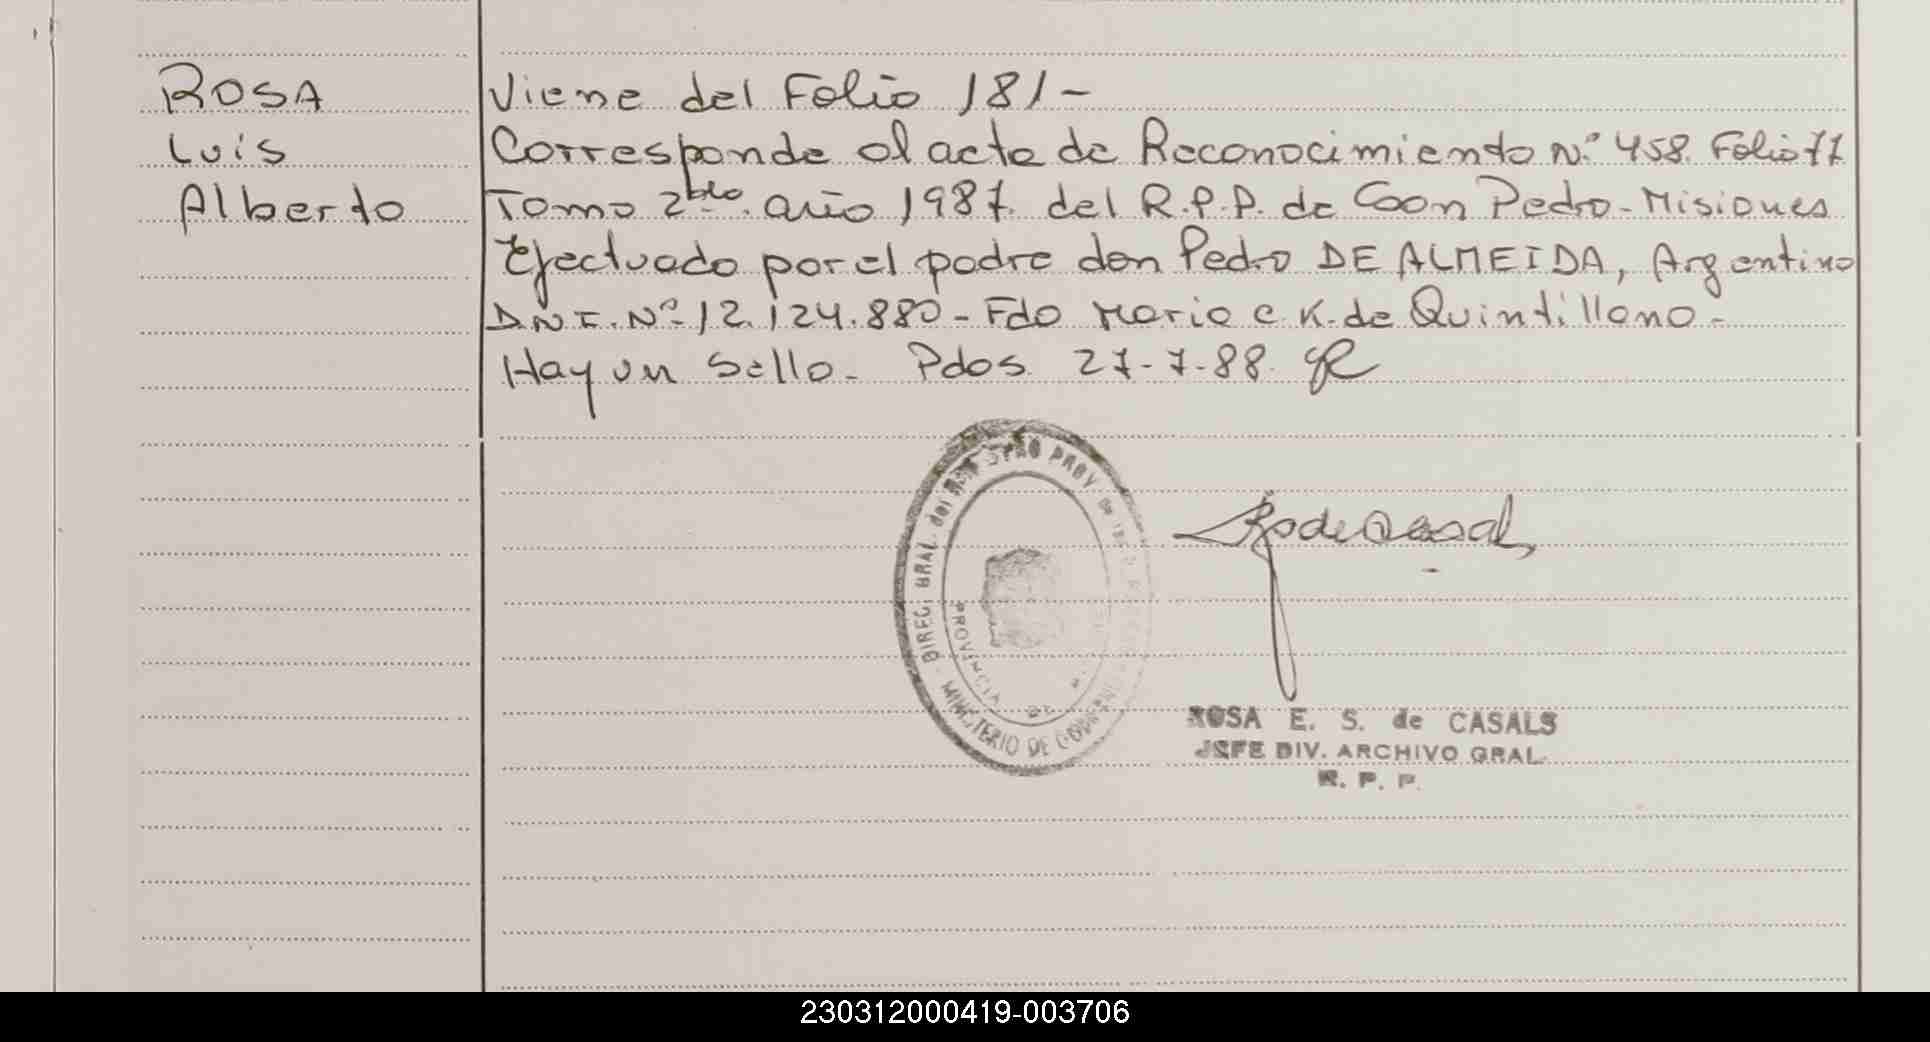 ROSA
Luis
Alberto
Viene del Folio 181-
Corresponde al acta de Reconocimiento N.º 458. Folio 71
Tomo 2bdo. año 1987. del R.P.P. de San Pedro-Misiones
Efectuado por el padre don Pedro DE ALMEIDA, Argentino
D.N.I. Nº 12.124.880 - Fdo Maria C K. de Quintillano -
Hay un Sello. Pdos. 27-7-88.
DIREC. GRAL. del REGISTRO PROV. de las
MINISTERIO DE GOBIERNO
PROVINCIA DE
ROSA E. S. de CASALS
JEFE DIV. ARCHIVO GRAL.
R. P. P.
230312000419-003706